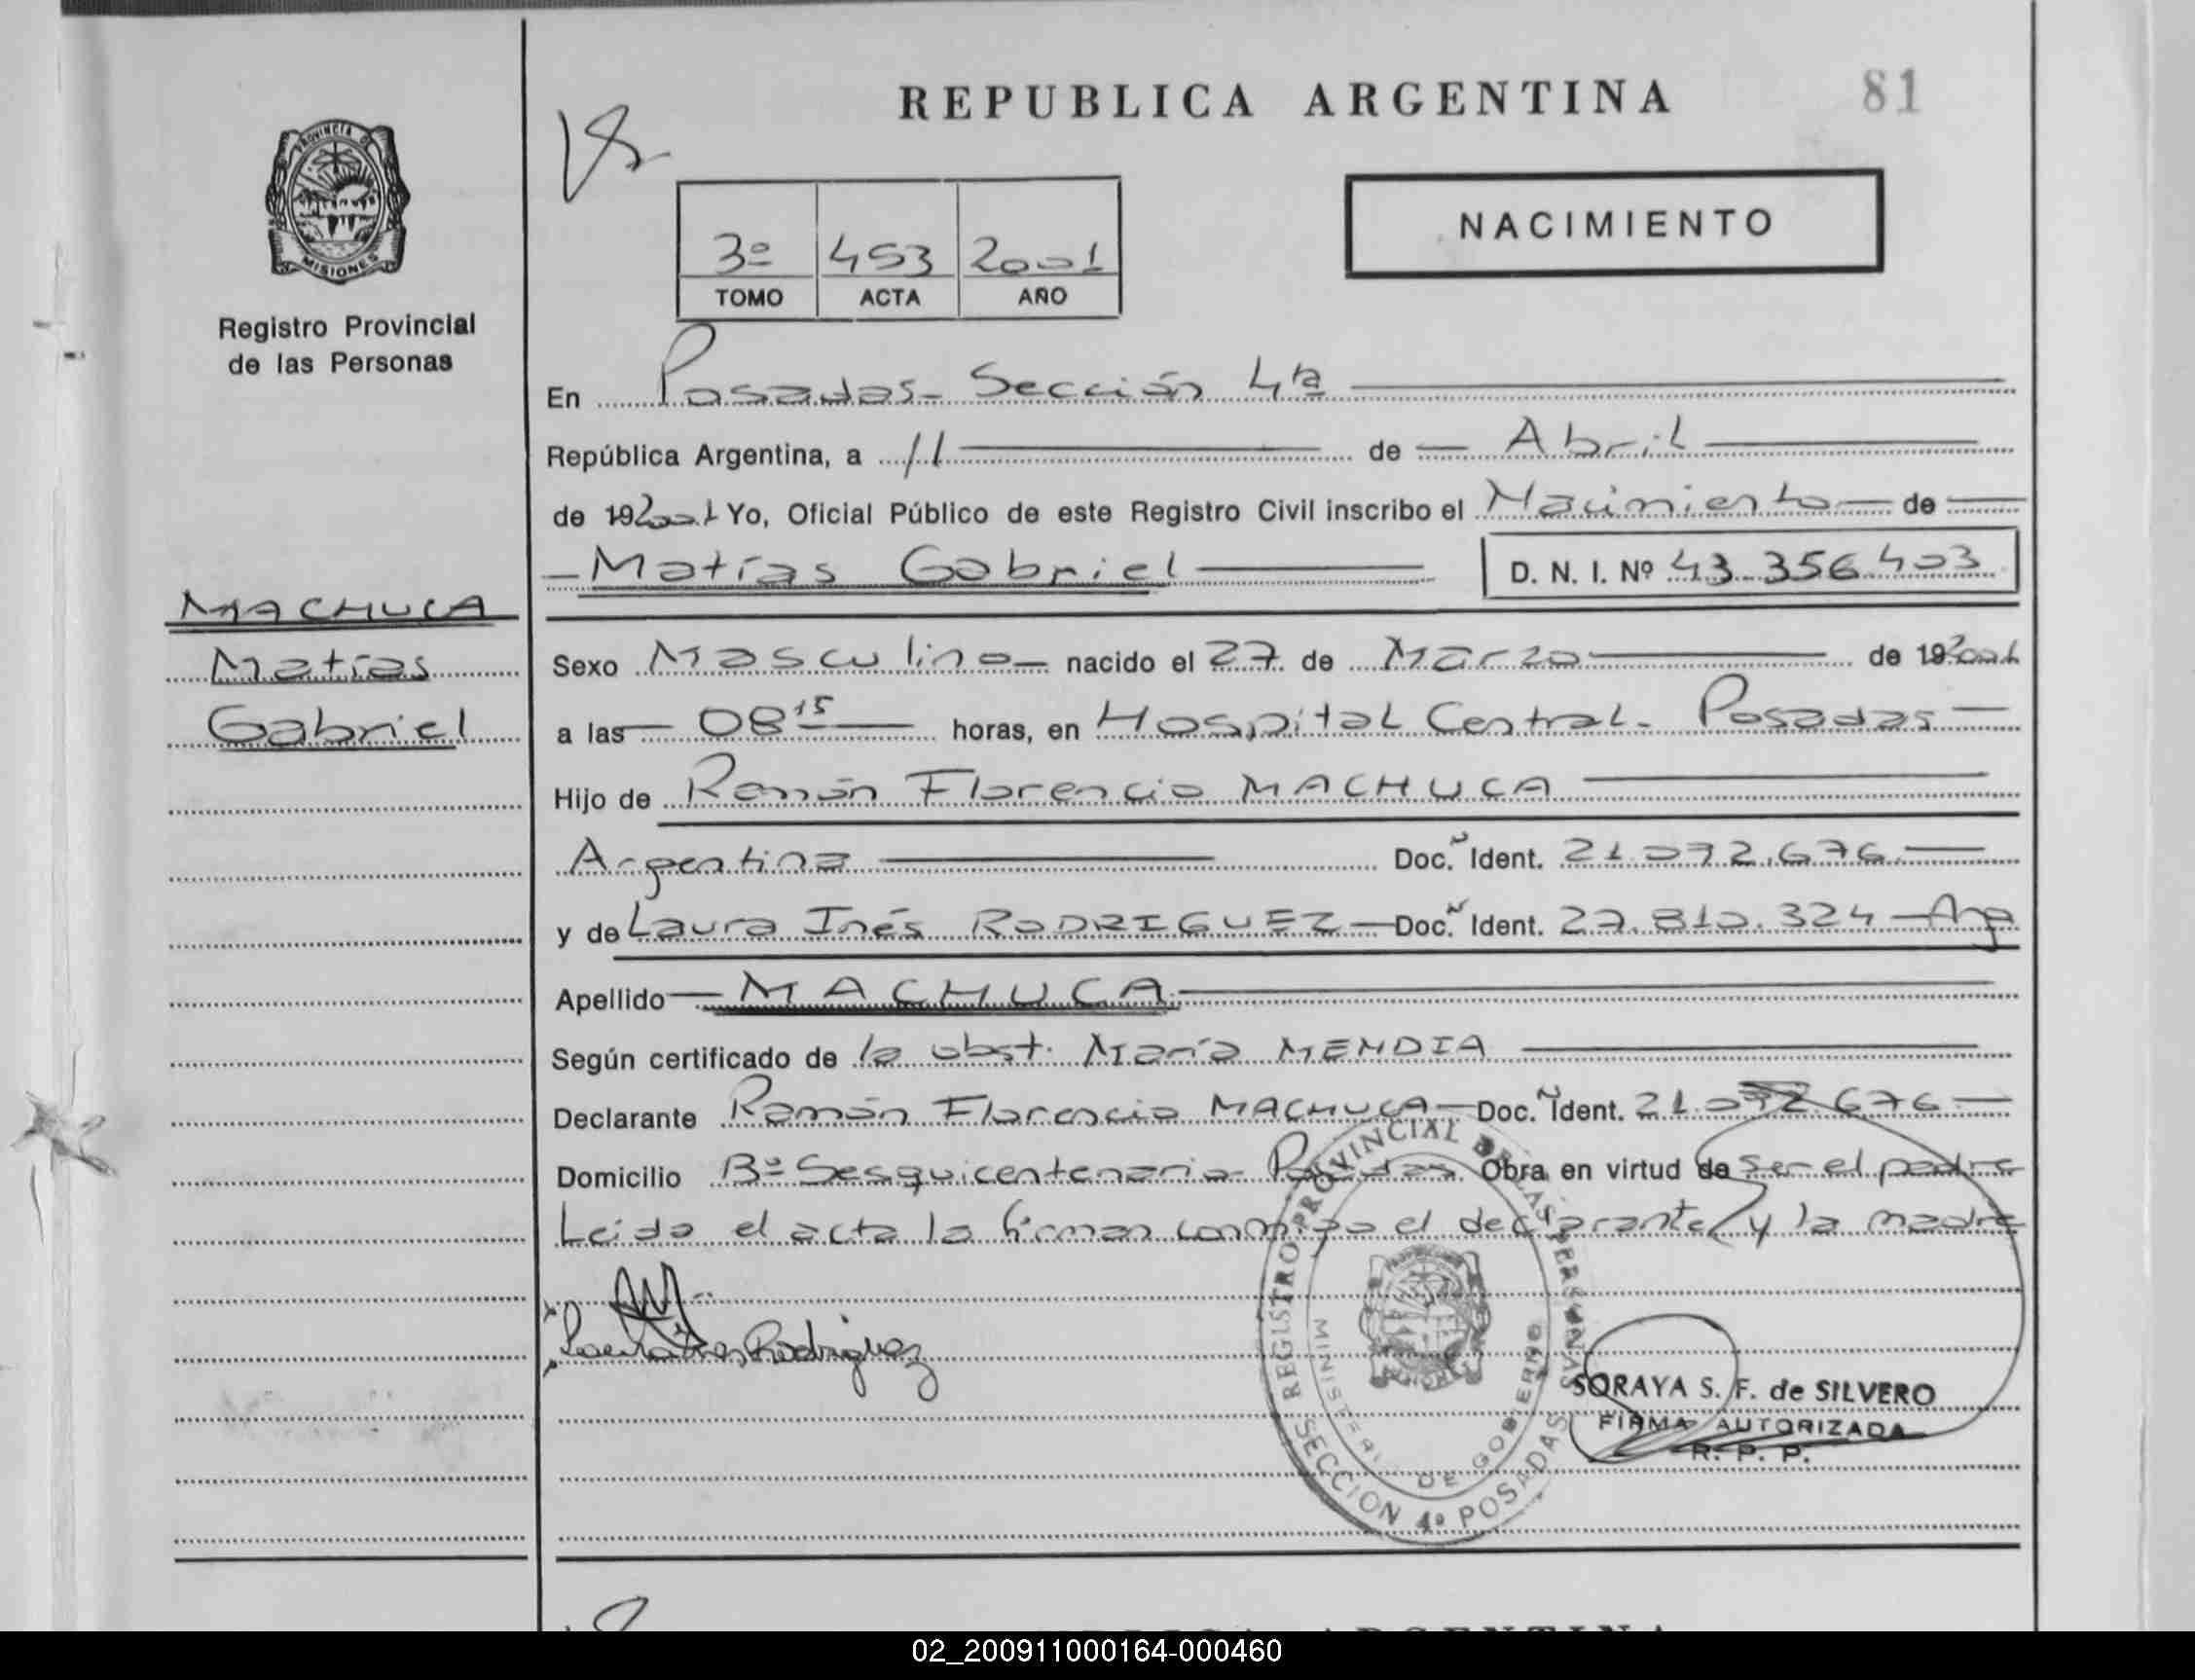 REPUBLICA ARGENTINA
81
PROVINCIA DE
MISIONES
Registro Provincial
de las Personas
NACIMIENTO
3º 453 2001
TOMO ACTA AÑO
En Posadas- Sección 4ta
República Argentina, a 11 de Abril
de 192001 Yo, Oficial Público de este Registro Civil inscribo el Nacimiento de
Matías Gabriel D. N. I. Nº 43.356.403
MACHUCA
Matías
Gabriel
Sexo Masculino nacido el 27 de Marzo de 192001
a las 08 15 horas, en Hospital Central. Posadas
Hijo de Ramón Florencio MACHUCA
Argentina Doc. N Ident. 21.072.676
y de Laura Inés RODRIGUEZ Doc. N Ident. 27.810.324 Arg
Apellido MACHUCA
Según certificado de la obst. María MENDIA
Declarante Ramón Florencio MACHUCA Doc. N Ident. 21.072.676
Domicilio Bº Sesquicentenario Posadas Obra en virtud de ser el padre
Leida el acta la firman conmigo el declarante y la madre
Laura Ines Rodriguez
REGISTRO PROVINCIAL DE LAS PERSONAS
MINISTERIO DE GOBIERNO
SECCION 4º POSADAS
SORAYA S. F. de SILVERO
FIRMA AUTORIZADA
R. P. P.
02_200911000164-000460